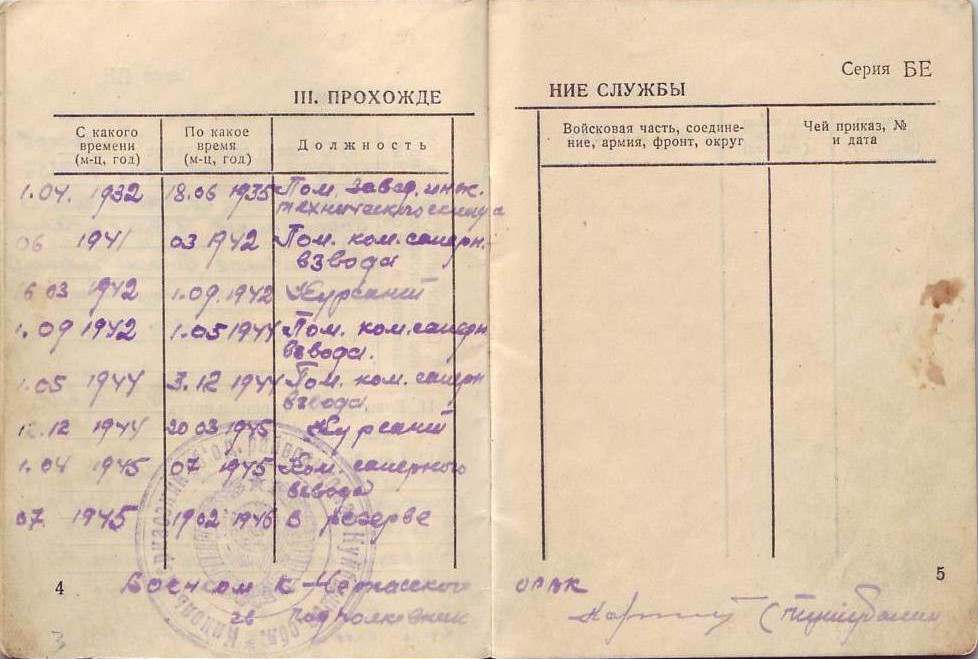 Серия БЕ
III. ПРОХОЖДЕ НИЕ СЛУЖБЫ
С какого времени (м-ц, год) По какое время (м-ц, год) Должность Войсковая часть, соедине- Чей приказ, №
ние, армия, фронт, округ и дата
1.04. 1932 18.06 1935 Пом. завед. инж.
технического
06 1941 03 1942 Пом. ком. саперн.
взвода
6 03 1942 1.09. 1942 Курсант
1.09 1942 1.05 1944 Пом. ком. саперн
взвода.
1.05 1944 3.12 1944 Пом. ком. саперн
взвода.
12.12 1944 20 03 1945 Курсант
1.04 1945 07 1945 Ком. саперного
взвода
07. 1945 1902 1946 в резерве
4 5
Военком К-Черкасского ОРВК
гв подполковник